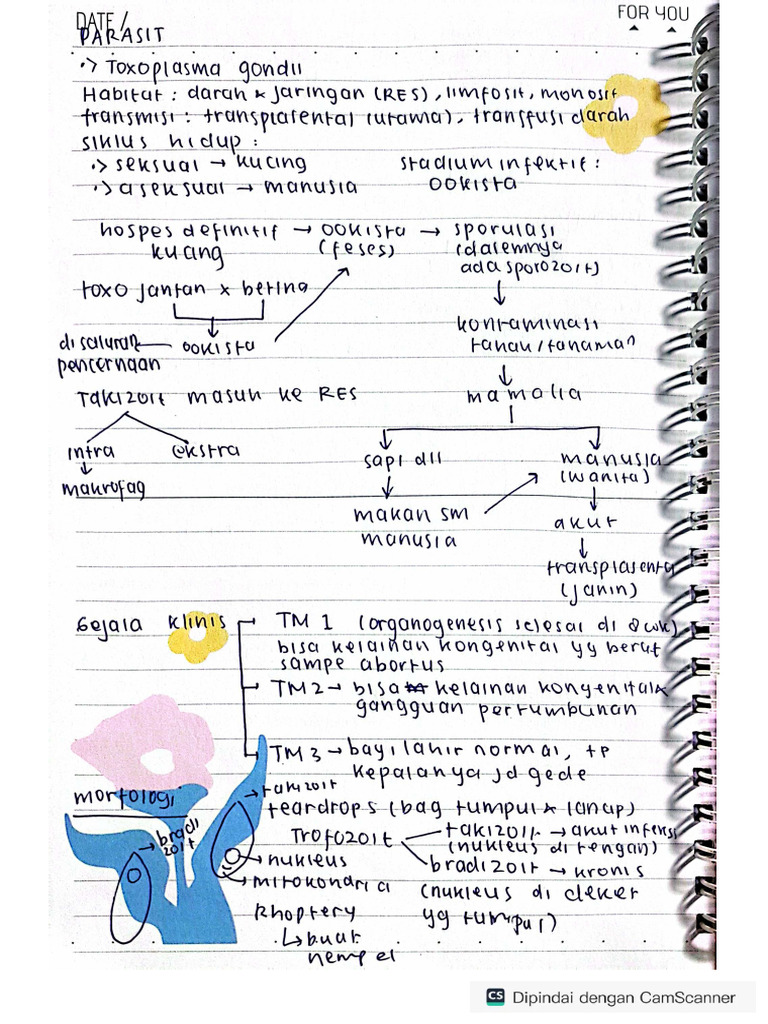 DATE /
FOR YOU
PARASIT
·> Toxoplasma gondii
Habitat : darah & jaringan (RES), limfosit, monosit
transmisi : transplasental (utama), transfusi darah
siklus hidup :
·> seksual → kucing
·> aseksual → manusia
stadium infektif :
ookista
hospes definitif → ookista → sporulasi
kucing (feses) (dalemnya
ada sporozoit)
toxo jantan x betina
↓
kontaminasi
tanah/tanaman
di saluran
pencernaan
ookista
↓
mamalia
Takizoit masuk ke RES
intra ekstra
↓
makrofag
sapi dll
↓
makan sm
manusia
manusia
(wanita)
↓
akut
↓
transplasenta
(janin)
Gejala klinis
TM 1 (organogenesis selesai di 8 wk)
bisa kelainan kongenital yg berat
sampe abortus
TM 2 → bisa kelainan kongenital &
gangguan pertumbuhan
TM 3 → bayi lahir normal, tp
kepalanya jd gede
morfologi
→ takizoit
teardrops (bag tumpul & lancip)
→ bradi
zoit
Trofozoit
takizoit → akut infeksi
(nukleus di tengah)
bradizoit → kronis
(nukleus di deket
yg tumpul)
→ nukleus
→ mitokondria
Rhoptery
↳ buat
nempel
CS Dipindai dengan CamScanner